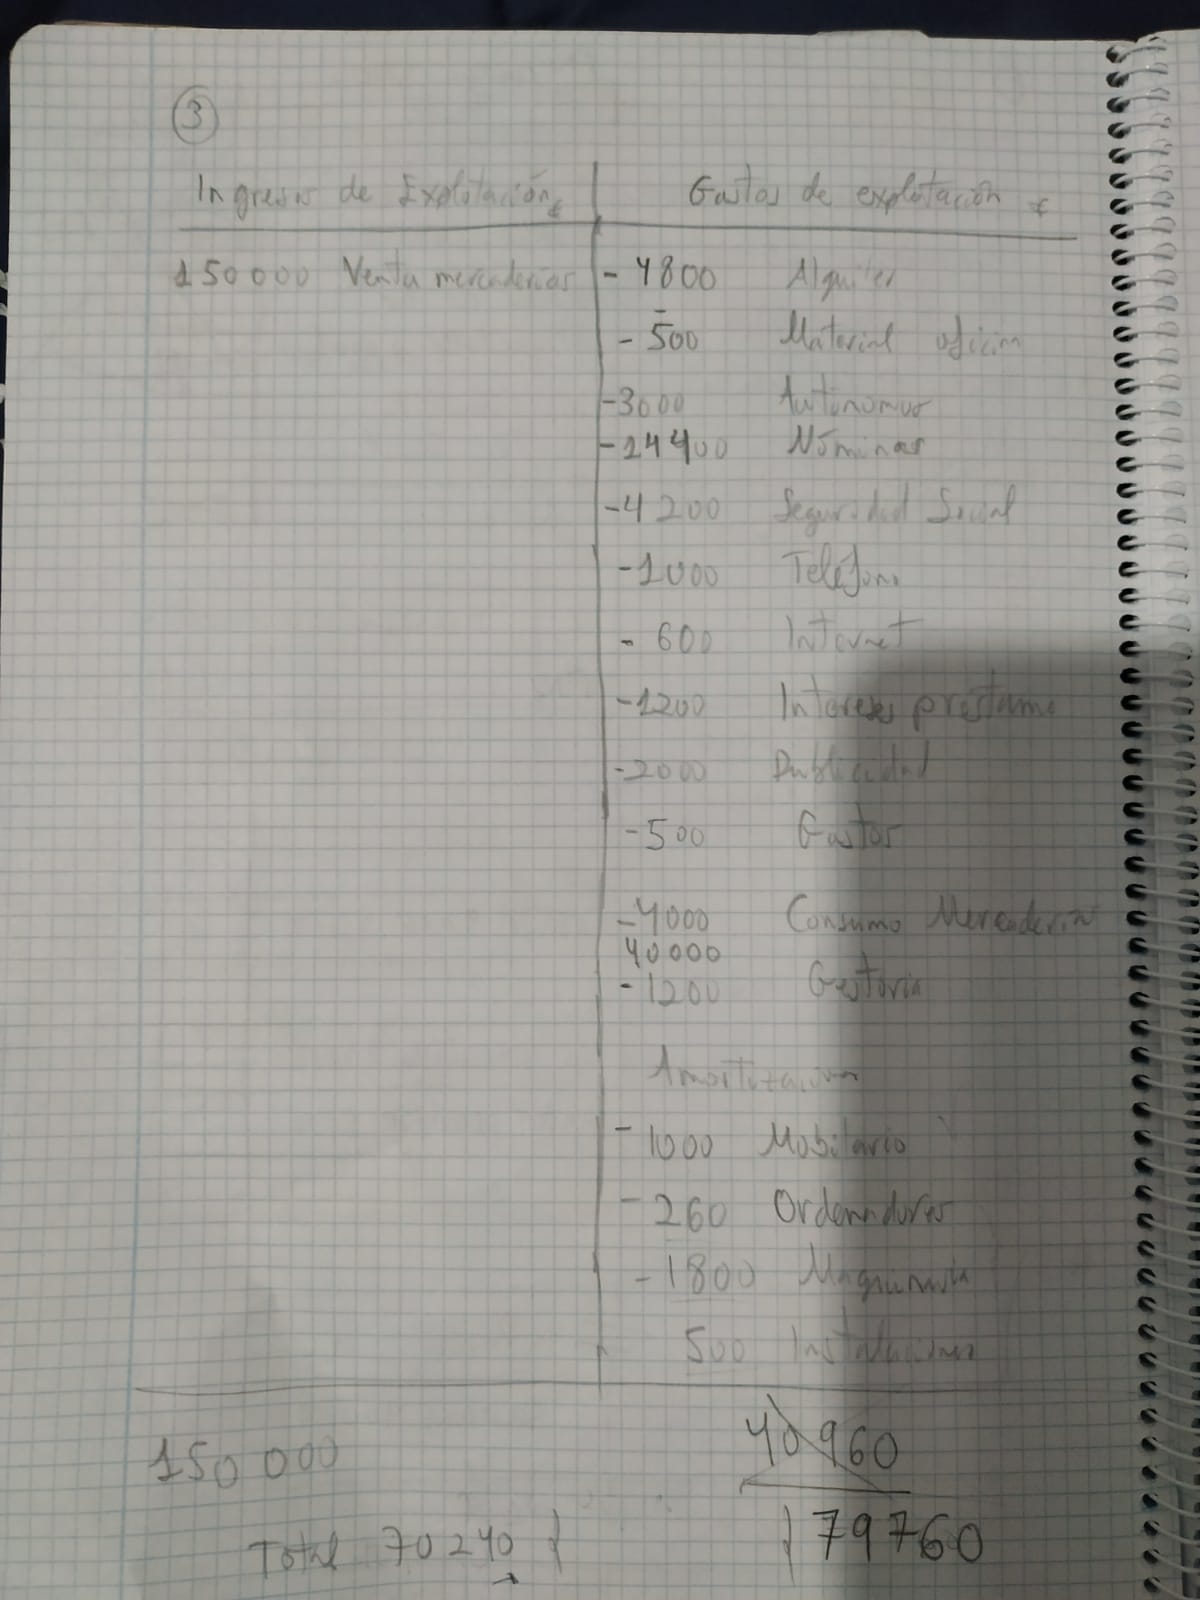 3
Ingresos de Explotación € Gastos de explotación €
150000 Venta mercaderias - 4800 Alquiler
- 500 Material oficin
-3000 Autonomos
-14400 Nóminas
-4200 Seguridad Social
-1000 Teléfono
- 600 Internet
-1200 Intereses prestamo
-2000 Publicidad
-500 Gastos
-4000 Consumo Mercaderia
40000
-1200 Gestoria
Amortizacion
- 1000 Mobilario
- 260 Ordenadores
- 1800 Maquinaria
500 Instalaciones
150 000 40 960
Total 70240 79760